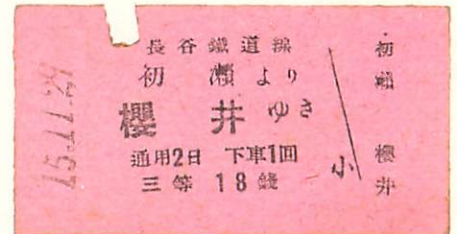 長谷鐵道線
初瀬より
櫻井ゆき
通用2日 下車1回
三等 18錢
小
初瀬
櫻井